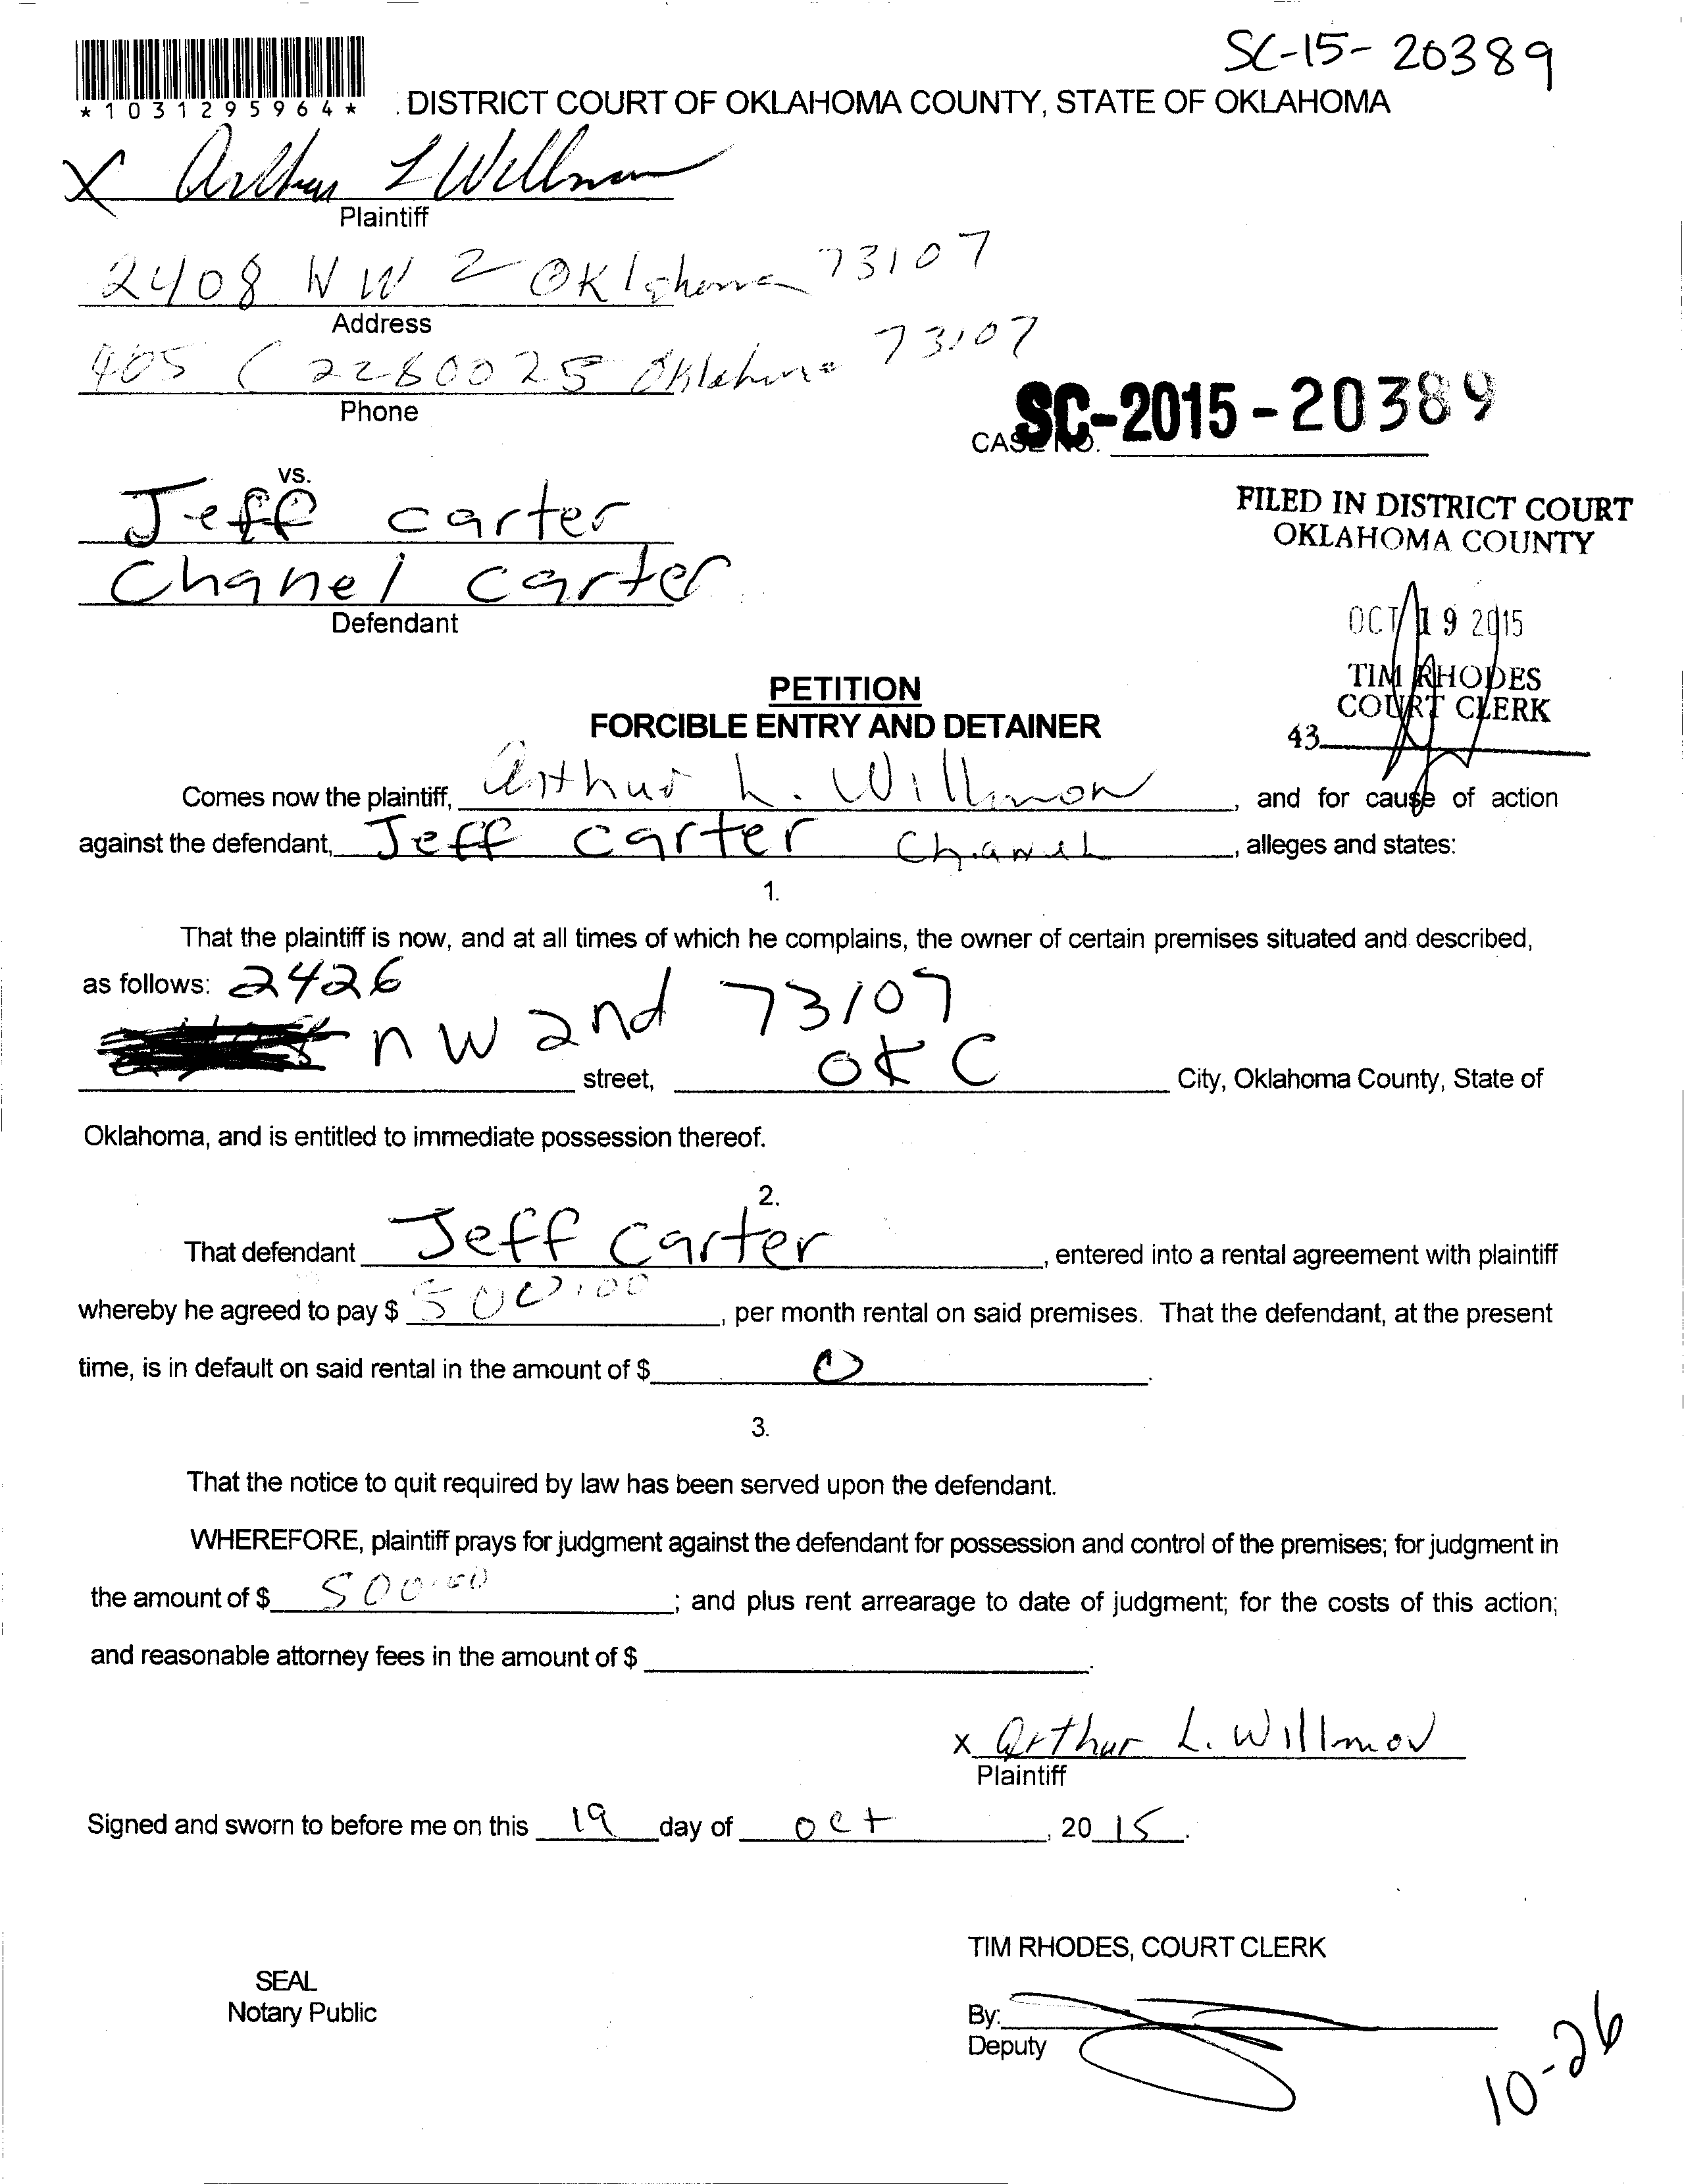 SC-15-20389
*1031295964*
DISTRICT COURT OF OKLAHOMA COUNTY, STATE OF OKLAHOMA
X Arthur L Willmon
Plaintiff
2408 NW 2 Oklahoma 73107
Address
405 ( 2280025 Oklahoma 73107
Phone
CASE NO. SC-2015-20389
vs.
Jeff carter
Chanel carter
Defendant
FILED IN DISTRICT COURT
OKLAHOMA COUNTY
OCT 19 2015
TIM RHODES
COURT CLERK
43
PETITION
FORCIBLE ENTRY AND DETAINER
Comes now the plaintiff, Arthur L. Willmon, and for cause of action
against the defendant, Jeff carter Chanel, alleges and states:
1.
That the plaintiff is now, and at all times of which he complains, the owner of certain premises situated and described,
as follows: 2426
nw 2nd 73107
street, OKC City, Oklahoma County, State of
Oklahoma, and is entitled to immediate possession thereof.
2.
That defendant Jeff carter, entered into a rental agreement with plaintiff
whereby he agreed to pay $ 500.00, per month rental on said premises. That the defendant, at the present
time, is in default on said rental in the amount of $ 0.
3.
That the notice to quit required by law has been served upon the defendant.
WHEREFORE, plaintiff prays for judgment against the defendant for possession and control of the premises; for judgment in
the amount of $ 500.00; and plus rent arrearage to date of judgment; for the costs of this action;
and reasonable attorney fees in the amount of $ .
x Arthur L. Willmon
Plaintiff
Signed and sworn to before me on this 19 day of oct, 20 15.
TIM RHODES, COURT CLERK
SEAL
Notary Public
By:
Deputy
10-26